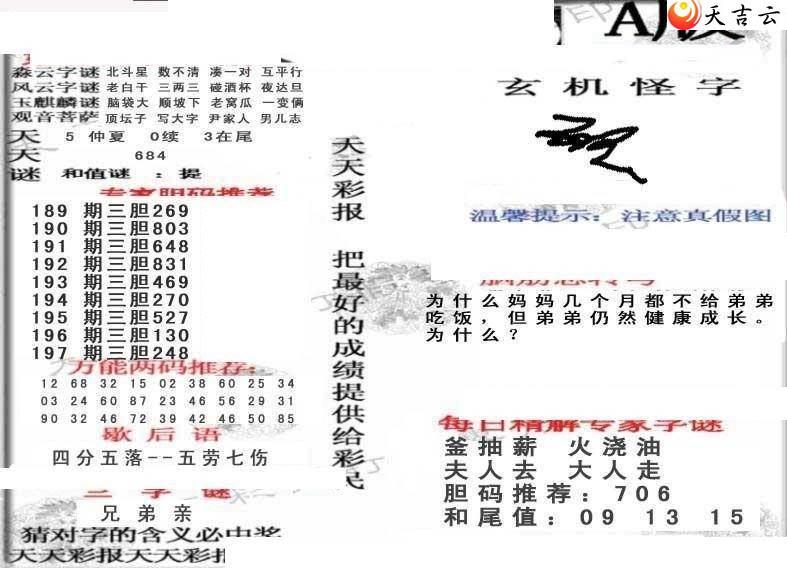 天吉云
森云字谜 北斗星 数不清 凑一对 互平行
风云字谜 老白干 三两三 碰酒杯 夜达旦
玉麒麟谜 脑袋大 顺坡下 老窝瓜 一变俩
观音菩萨 顶坛子 写大字 尹家人 男儿志
天 5 仲夏 0续 3在尾
天 684
谜 和值谜 :提
专家胆码推荐
189 期三胆269
190 期三胆803
191 期三胆648
192 期三胆831
193 期三胆469
194 期三胆270
195 期三胆527
196 期三胆130
197 期三胆248
万能两码推荐:
12 68 32 15 02 38 60 25 34
03 24 60 87 23 46 56 29 31
90 32 46 72 39 42 46 50 85
歇后语
四分五落--五劳七伤
三字谜
兄弟亲
猜对字的含义必中奖
天天彩报天天彩报
天天彩报 把最好的成绩提供给彩民
玄机怪字
温馨提示: 注意真假图
脑筋急转弯
为什么妈妈几个月都不给弟弟
吃饭,但弟弟仍然健康成长。
为什么?
每日精解专家字谜
釜抽薪 火浇油
夫人去 大人走
胆码推荐:706
和尾值:09 13 15